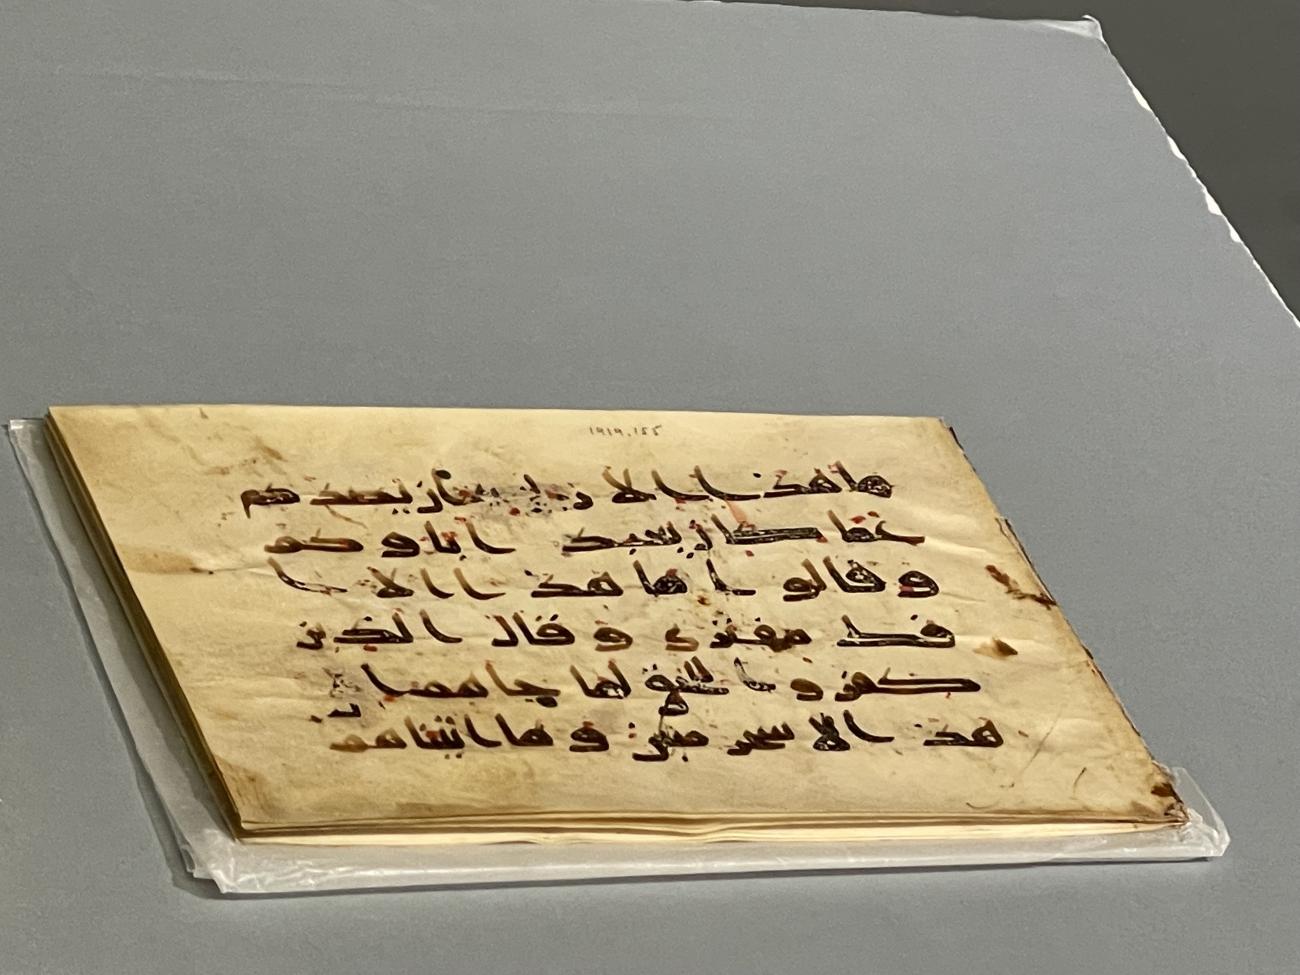 1919.155
ما هذا الا رجل يريد ان يصدكم
عما كان يعبد اباوكم
و قالوا ما هذا الا ا
فك مفترى و قال الذين
كفروا للحق لما جاهم ان
هذا الا سحر مبين و ما اتيناهم